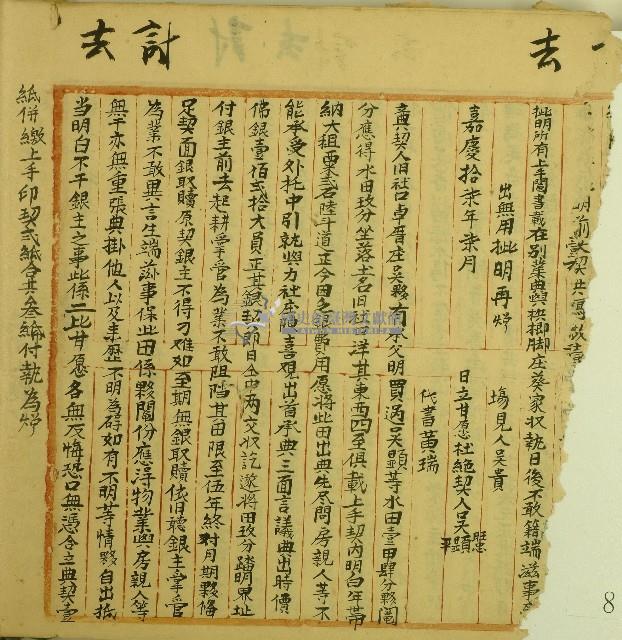 去
計
去
明前
批明所有上手鬮書載在別業典與拱揤脚庄葵家収執日後不敢籍端滋事
出無用批明再炤
嘉慶拾柒年柒月
塲見人吳貴
日立甘愿杜絕契人吳
代書黃瑞
立典契人旧社口卓厝庄吳夥有承父明買過吳顕等水田壹甲肆分夥鬮
分應得水田玖分坐落土名旧社口洋其東西四至俱載上手契內明白年帶
納大租粟弍石陸斗道立今因乏銀費用愿將此田出典先尽問房親人等不
能承受外托中引就與力社庄
喜現出首承典三面言議典出時價
佛銀壹佰弍拾大員正其銀契即日仝中両交収訖遂將田玖分踏明界址
付銀主前去起耕掌管為業不敢阻階其田限至伍年終對月期夥俻
足契面銀取贖原契銀主不得刁难如至期無銀取贖依旧聴銀主掌管
為業不敢異言生端滋事保此田係夥鬮份應得物業與房親人等
無干亦無重張典掛他人以及來歷不明為碍如有不明等情夥自出抵
当明白不干銀主之事此係二比甘愿各無反悔恐口無憑合立典契壹
紙併繳上手印契弍紙合共叁紙付執為炤
8